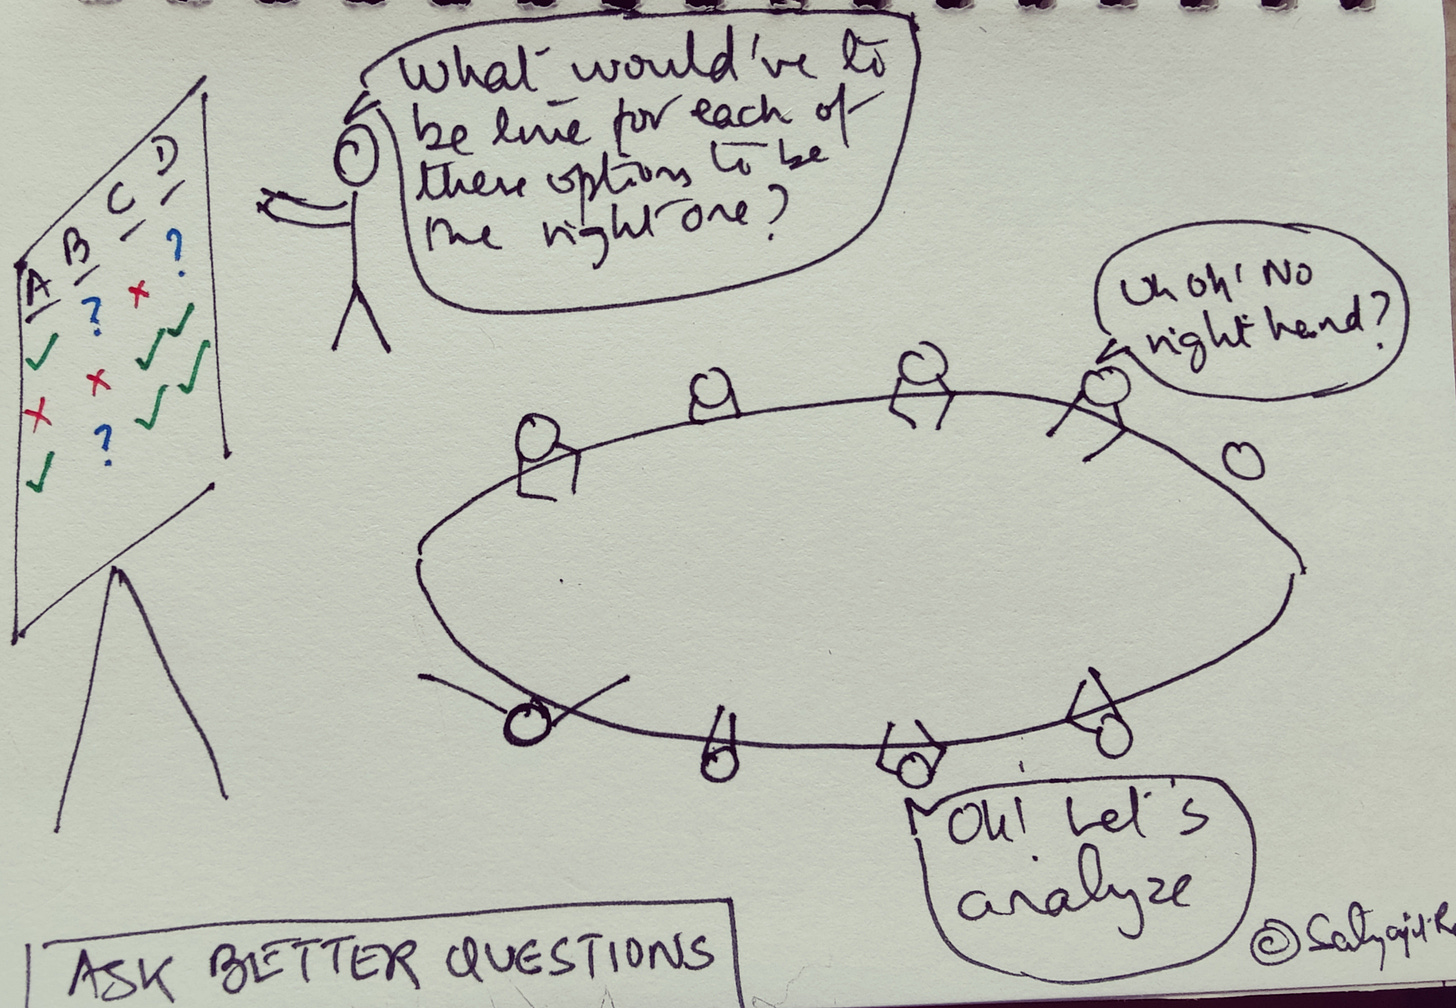 What would've to
be true for each of
these options to be
the right one?
A B C D
? ?
?
Uh oh! No
right hand?
Oh! Let's
analyze
ASK BETTER QUESTIONS
©